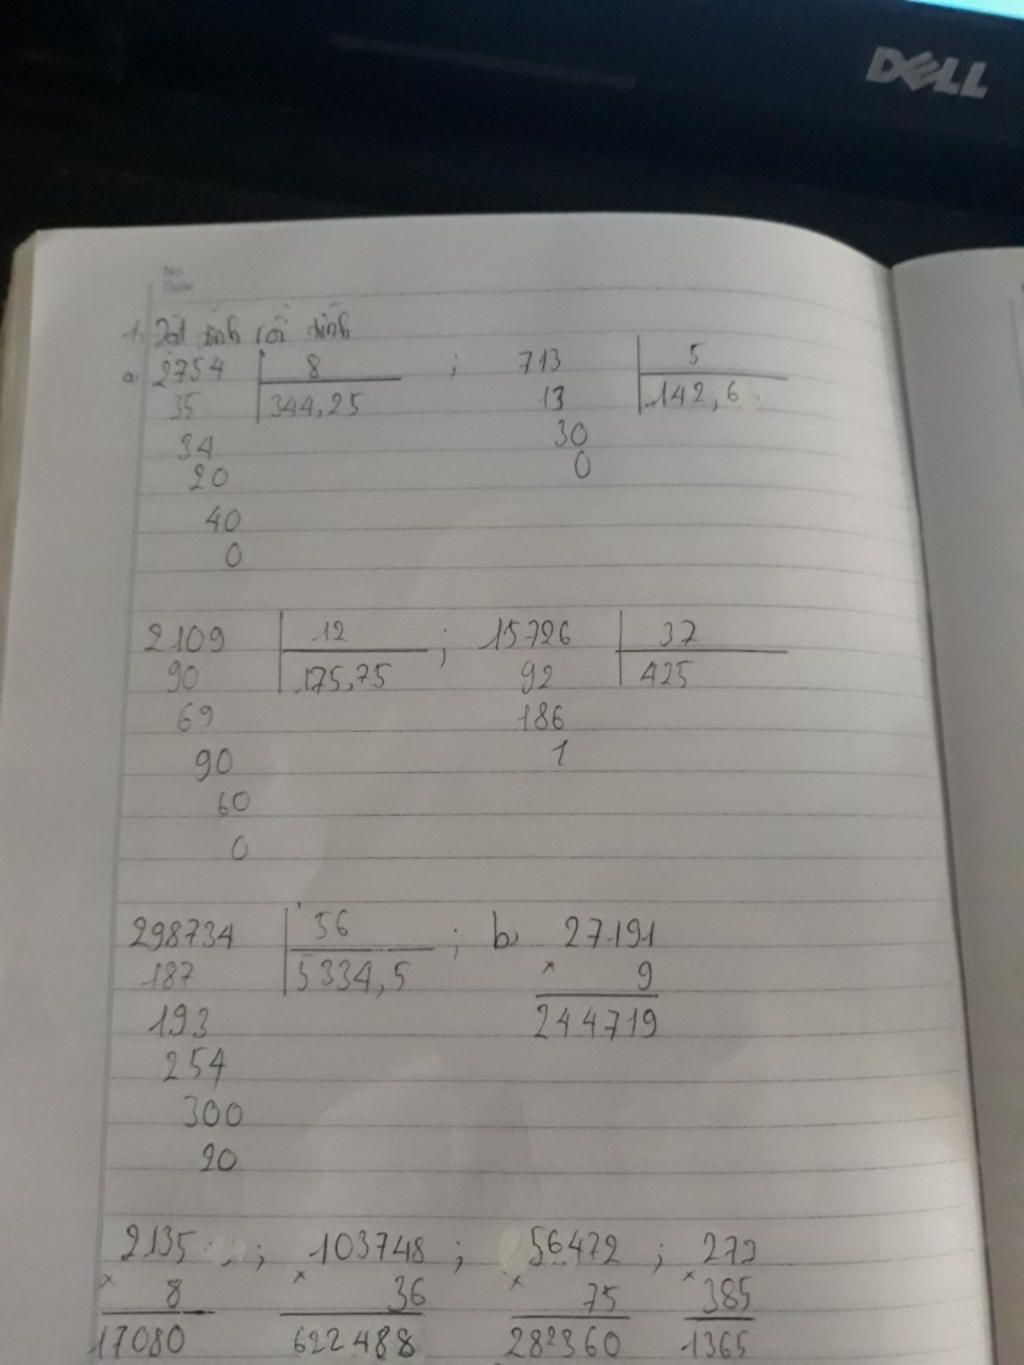 DELL
No.
Date
1, Đặt tính rồi tính
a, 2754 8 ; 713 5
35 344,25 13 142,6
34 30
20 0
40
0
2109 12 ; 15726 37
90 175,75 92 425
69 186
90 1
60
0
298734 56 ; b, 27191
187 5334,5 × 9
193 244719
254
300
20
2135 ; 103748 ; 56472 ; 279
× 8 × 36 × 75 × 385
17080 622488 282360 1365